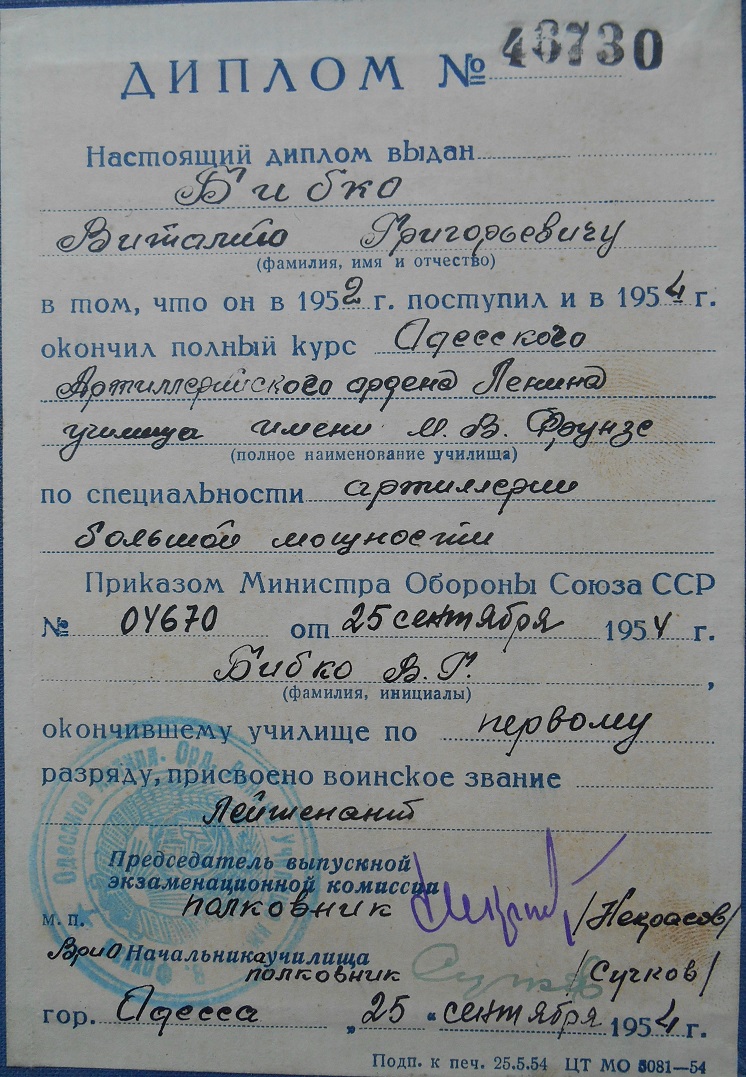 ДИПЛОМ № 46730
Настоящий диплом выдан
Бибко
Виталию Григорьевичу
(фамилия, имя и отчество)
в том, что он в 1952 г. поступил и в 1954 г.
окончил полный курс Одесского
Артиллерийского ордена Ленина
училища имени М. В. Фрунзе
(полное наименование училища)
по специальности артиллерии
большой мощности
Приказом Министра Обороны Союза ССР
№ 04670 от 25 сентября 1954 г.
Бибко В. Г.,
(фамилия, инициалы)
окончившему училище по первому
разряду, присвоено воинское звание
Лейтенант
Председатель выпускной
экзаменационной комиссии
полковник /Некрасов/
м. п.
Врио Начальника училища
полковник /Сучков/
гор. Одесса „25“ сентября 1954 г.
Подп. к печ. 25.5.54 ЦТ МО 3081—54